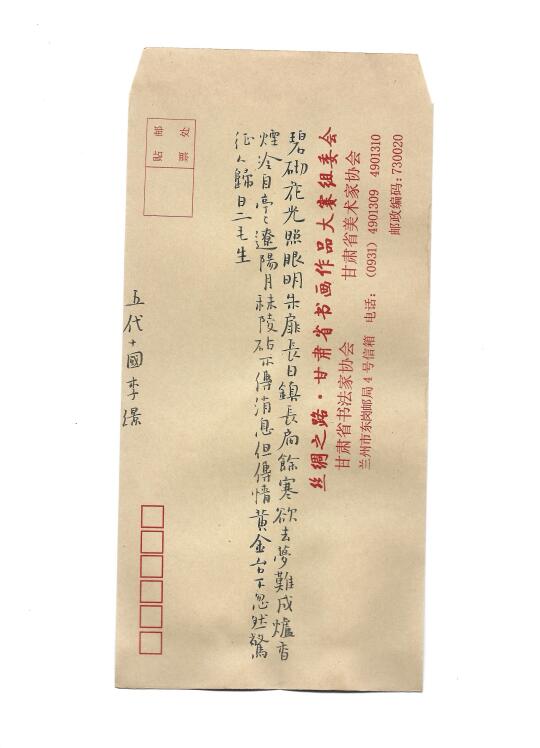 贴 邮
票 处
丝绸之路·甘肃省书画作品大赛组委会
甘肃省书法家协会 甘肃省美术家协会
兰州市东岗邮局4号信箱 电话:(0931) 4901309 4901310
邮政编码:730020
碧砌花光照眼明朱扉長日鎮長扃餘寒欲去夢難成爐香
煙冷自亭々遼陽月秣陵砧不傳消息但傳情黃金台下忽然驚
征人歸日二毛生
五代十國李璟